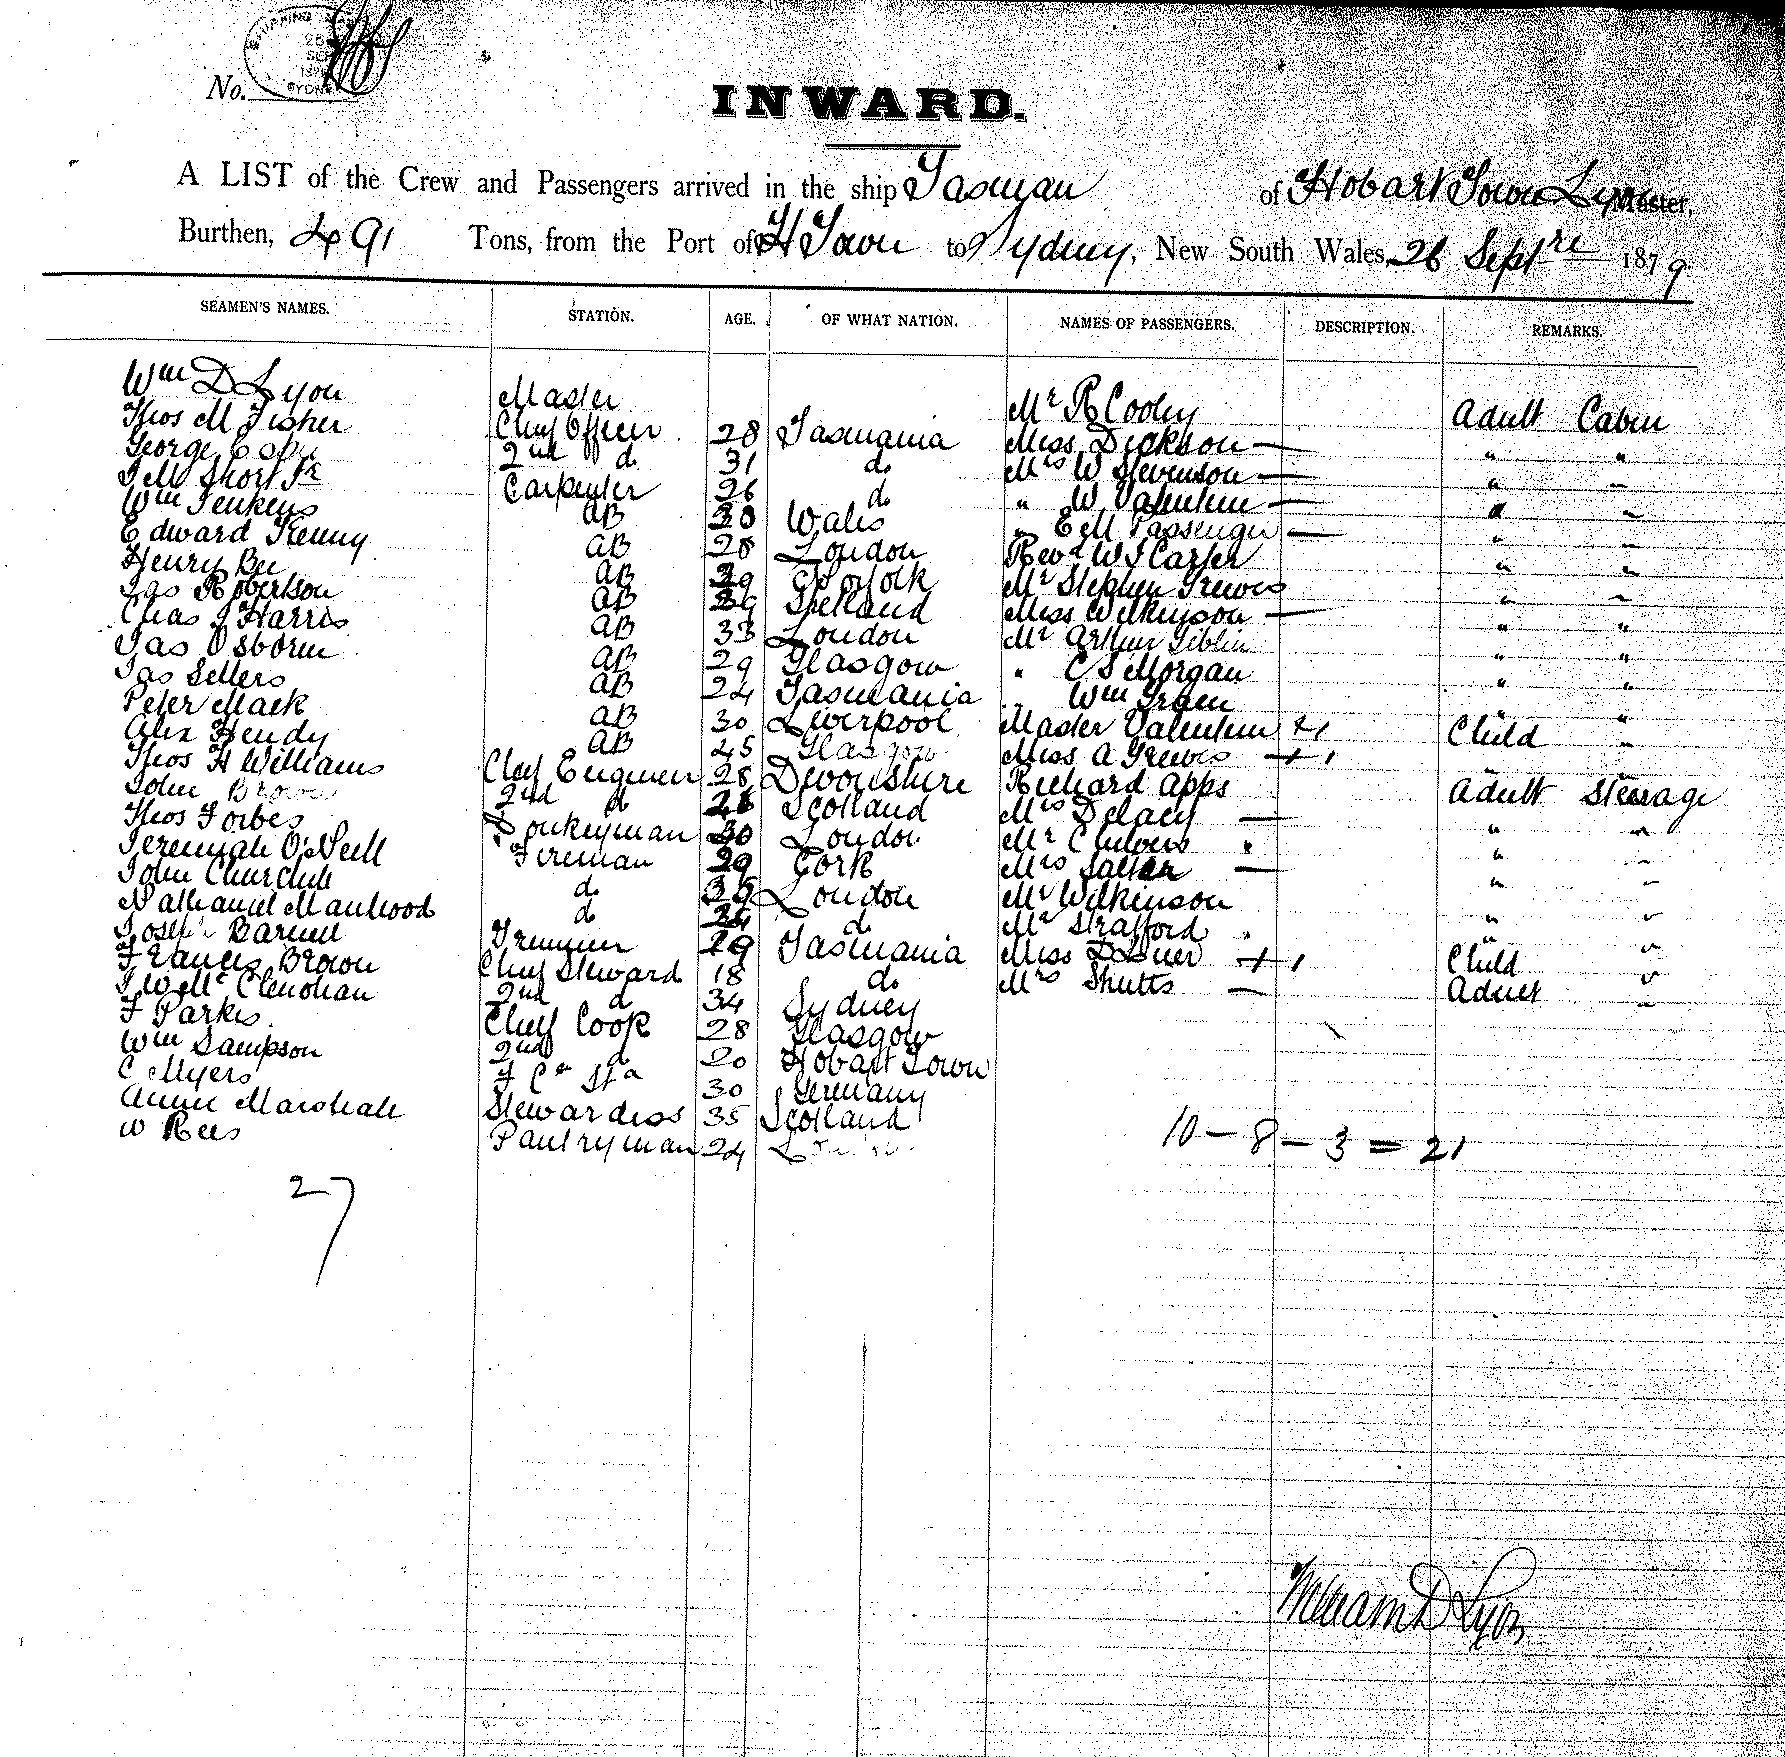 No.
SYDNEY
INWARD.
A LIST of the Crew and Passengers arrived in the ship Tasman of Hobart Town Lyon Master,
Burthen, 491 Tons, from the Port of H Town to Sydney, New South Wales, 26 Septre 1879
SEAMEN'S NAMES. STATION. AGE. OF WHAT NATION. NAMES OF PASSENGERS. DESCRIPTION. REMARKS.
Wm D Lyon Master Mr R Cooley Adult Cabin
Thos M Fisher Chief Officer 28 Tasmania Miss Dickson — " "
George 2nd do 31 do Mrs W Stevenson — " "
J M Short Jr Carpenter 26 do " W Valentine — " "
Wm Jenkins AB 30 Wales " E M Passenger — " "
Edward Kenny AB 28 London Revd W J Carter " "
Henry AB 29 Norfolk Mr Stephen Greeves " "
Jas Robertson AB Shetland Miss Wilkinson — " "
Chas J Harris AB 33 London Mr Arthur Giblin " "
Jas Osborn AB 29 Glasgow " C S Morgan " "
Jas Sellers AB 24 Tasmania " Wm " "
Peter Mack AB 30 Liverpool Master Valentine +1 Child "
Alex Hendy AB 45 Glasgow Miss A Greeves +1 " "
Thos H Williams Chief Engineer 28 Devonshire Richard Apps Adult Steerage
John Brown 2nd do Scotland Mrs Delacy — " "
Thos Forbes Donkeyman 30 London Mr " "
Jeremiah O'Neill Fireman 29 Cork Mrs Salter — " "
John Churchill do 35 London Mr Wilkinson " "
Nathaniel Manhood do do Mr Stratford " "
Joseph Barnett Trimmer 19 Tasmania Miss +1 Child "
Francis Brown Chief Steward 18 do Mrs Shutts — Adult "
J W McClenohan 2nd do 34 Sydney
F Parkes Chief Cook 28 Glasgow
Wm Sampson 2nd do 20 Hobart Town
C Myers 30 Germany
Annie Marshall Stewardess 35 Scotland
W Rees Pantryman 24
10 — 8 — 3 = 21
27
William D Lyon